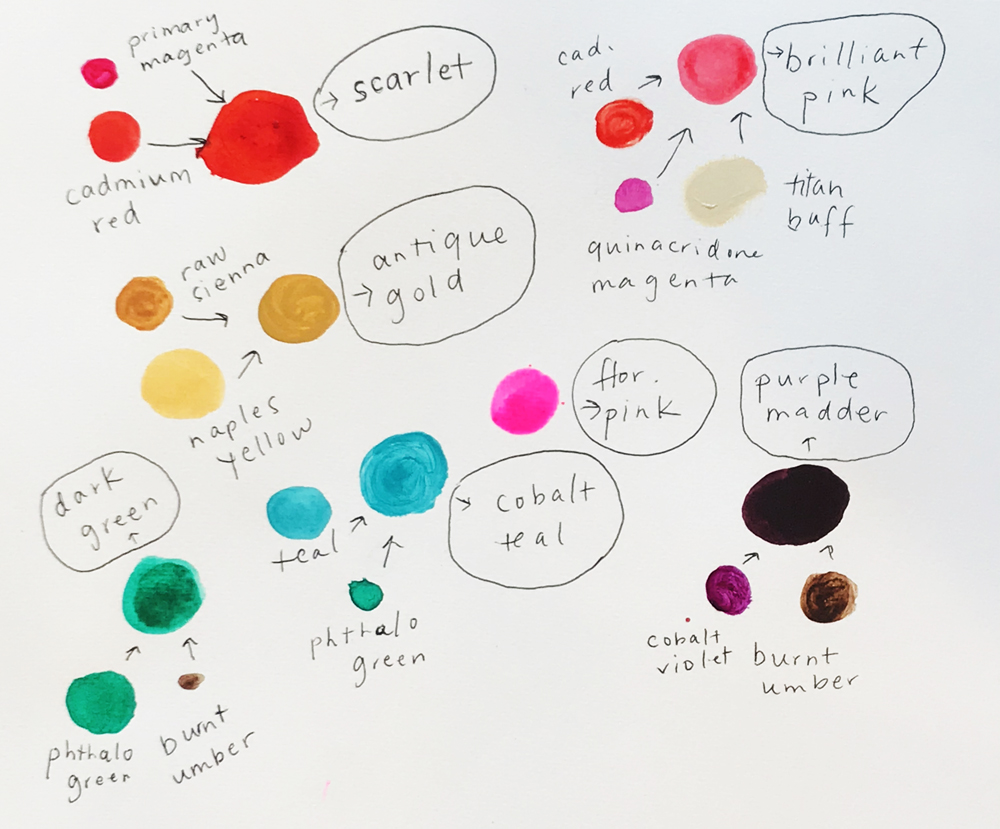 primary
magenta
→ scarlet
cadmium
red
cad.
red
→ brilliant
pink
titan
buff
quinacridone
magenta
raw
sienna
antique
→ gold
naples
yellow
flor.
→ pink
purple
madder
dark
green
cobalt
teal
teal
phthalo
green
cobalt
violet
burnt
umber
phthalo
green
burnt
umber